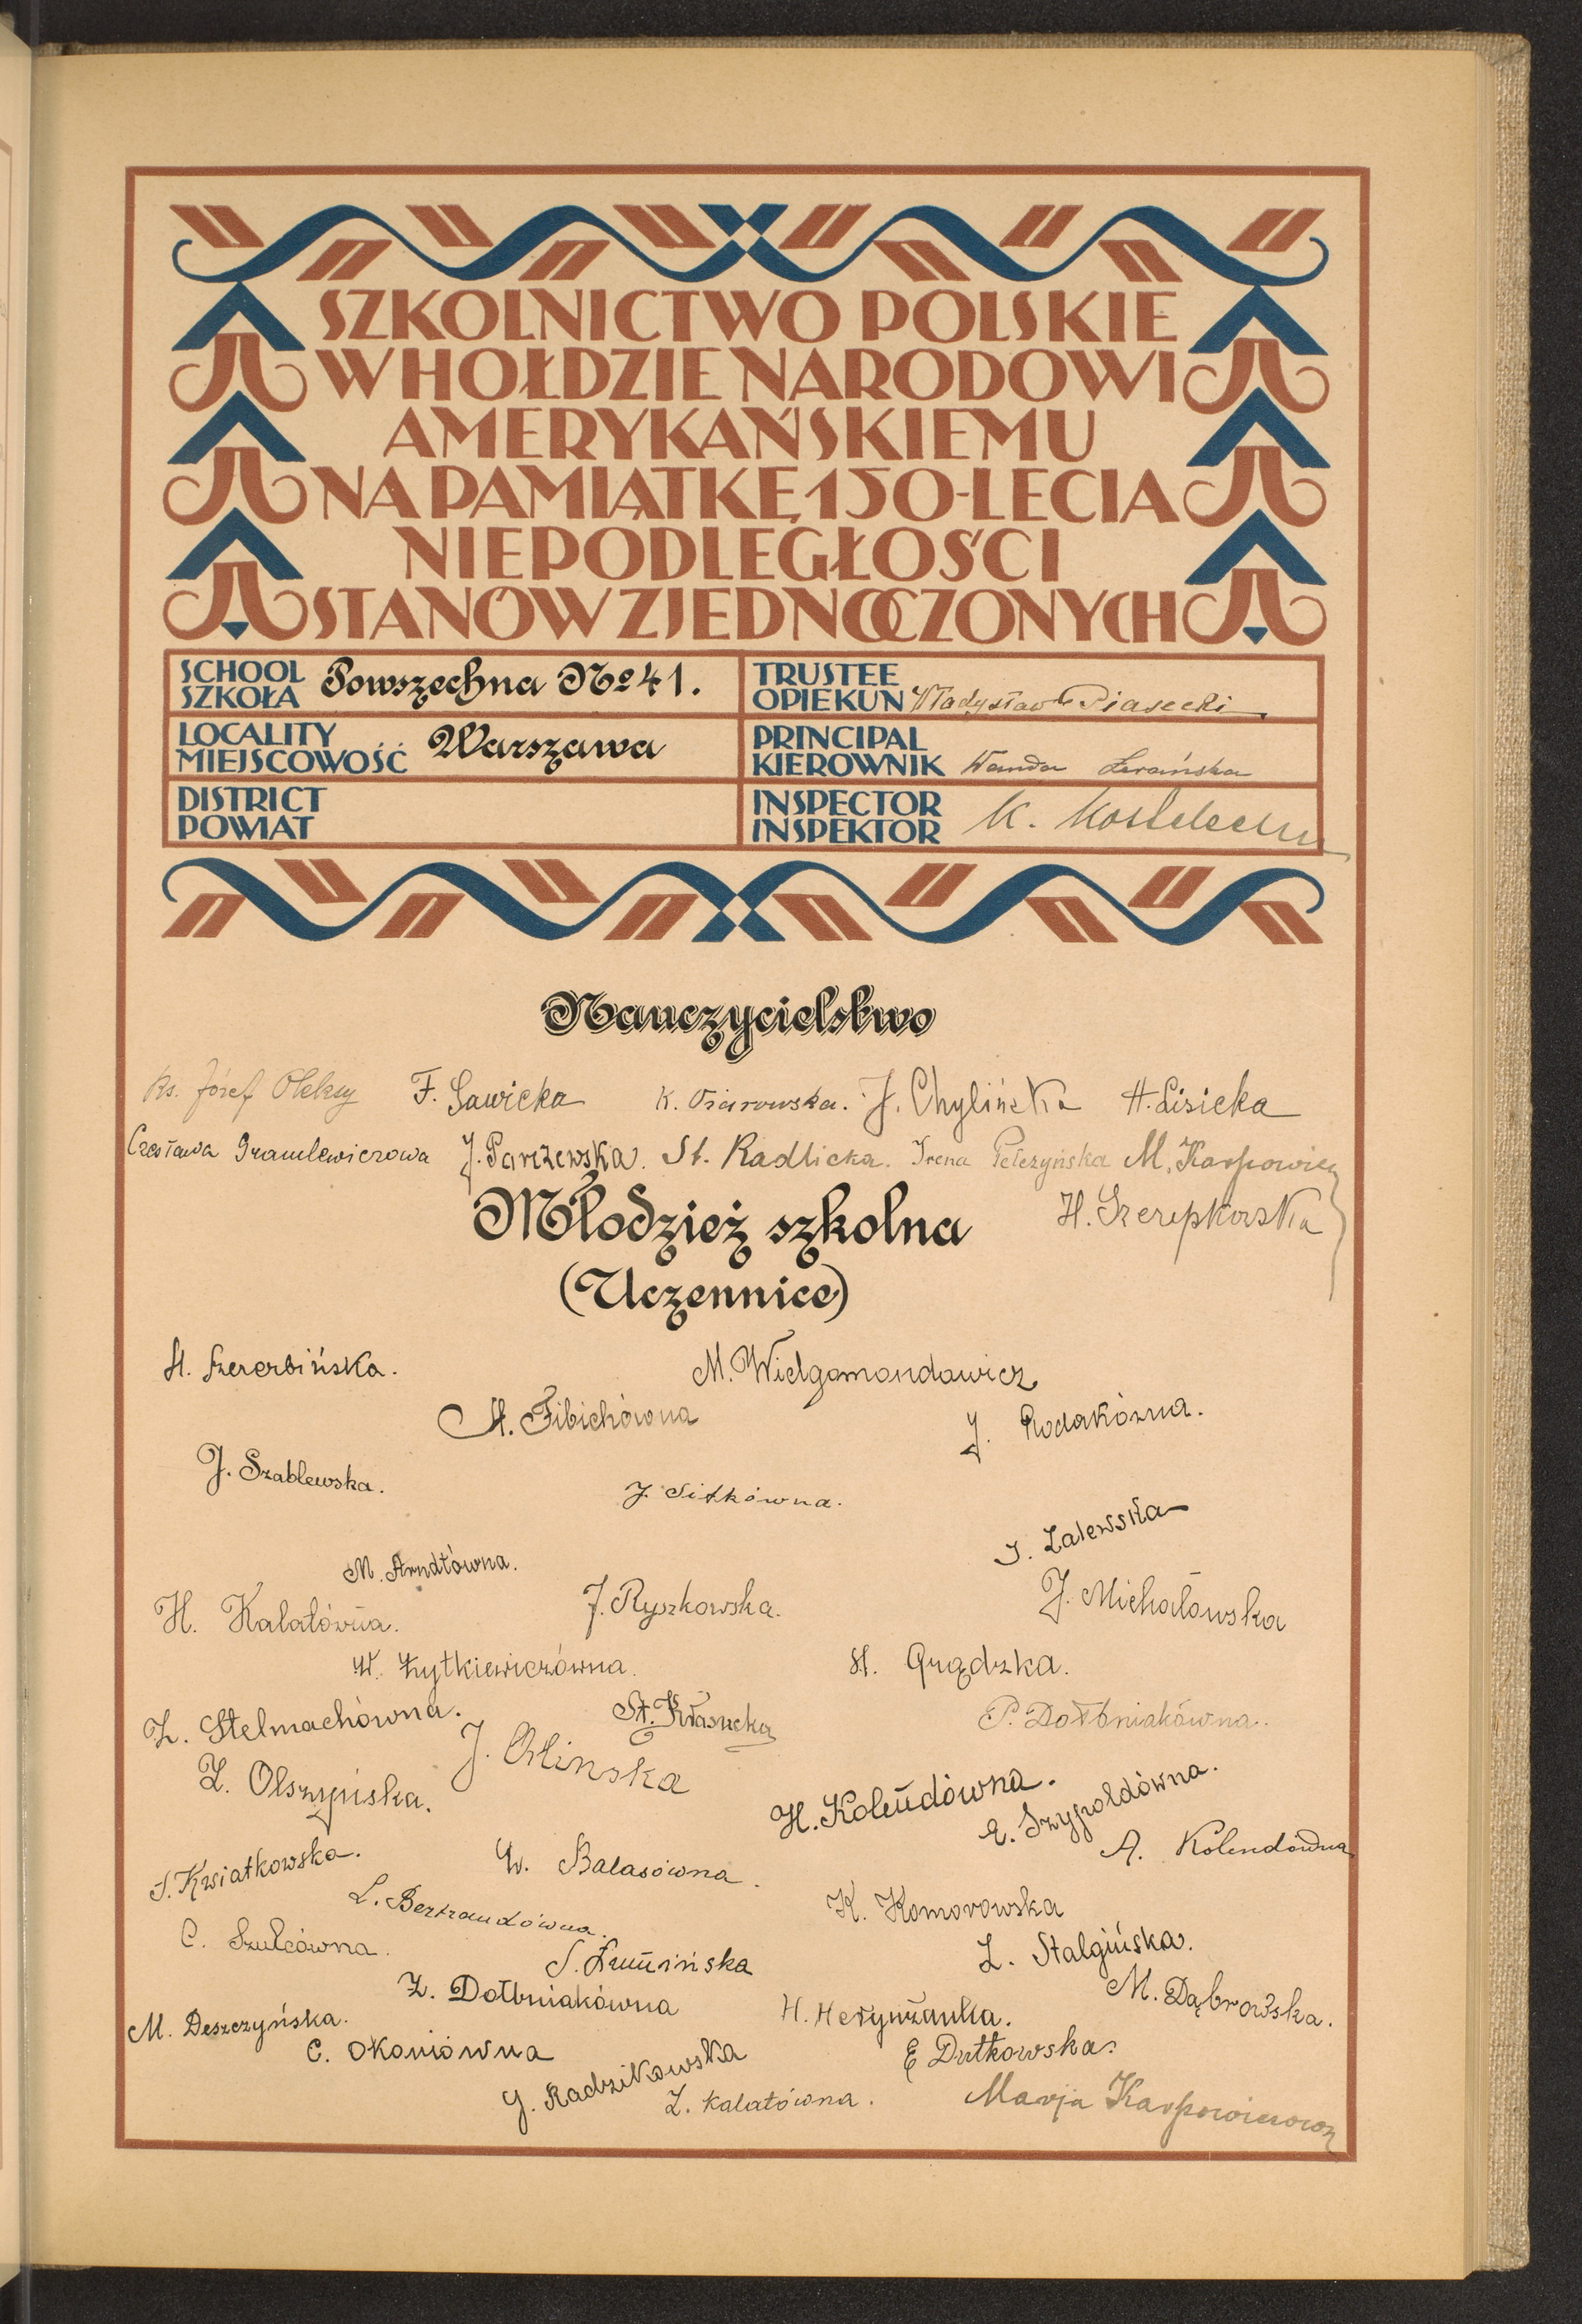 SZKOLNICTWO POLSKIE
W HOŁDZIE NARODOWI
AMERYKAŃSKIEMU
NA PAMIĄTKĘ 150-LECIA
NIEPODLEGŁOŚCI
STANÓW ZJEDNOCZONYCH
SCHOOL
SZKOŁA Powszechna No 41.
TRUSTEE
OPIEKUN Władysław Piasecki
LOCALITY
MIEJSCOWOŚĆ Warszawa
PRINCIPAL
KIEROWNIK Wanda
DISTRICT
POWIAT
INSPECTOR
INSPEKTOR K.
Nauczycielstwo
Ks. Józef Oleksy F. Sawicka K. Ożarowska. J. Chylińska H. Lisicka
Czesława J. Parzewska. St. Radlicka. Irena Pełczyńska M. Karpowicz
H. Szerepkowska
Młodzież szkolna
(Uczennice)
H. Szczerbińska.
M. Wielgomondowicz
H. Fibichówna
J. Rodakówna.
J. Szablewska.
J. Sitkówna.
J. Zalewska
M. Arndtówna.
H. Kałatówna.
J. Ryszkowska.
J. Michałowska
W. Żytkiewiczówna.
H. Grądzka.
Z. Stelmachówna.
St. Kłasucka
P. Dołbniakówna.
J. Orlinska
Z. Olszyńska.
H. Kolendówna.
E. Szypołdówna.
A. Kolendówna
S. Kwiatkowska.
W. Balasówna.
L. Bertrandówna.
K. Komorowska
C. Szulcówna.
Z. Stalgińska.
S. Żmuzińska
M. Dąbrowska.
Z. Dołbniakówna
M. Deszczyńska.
H.
C. Okoniówna
E Dutkowska.
J. Radzikowska
Z. Kalatówna.
Marja Karpowiczowa